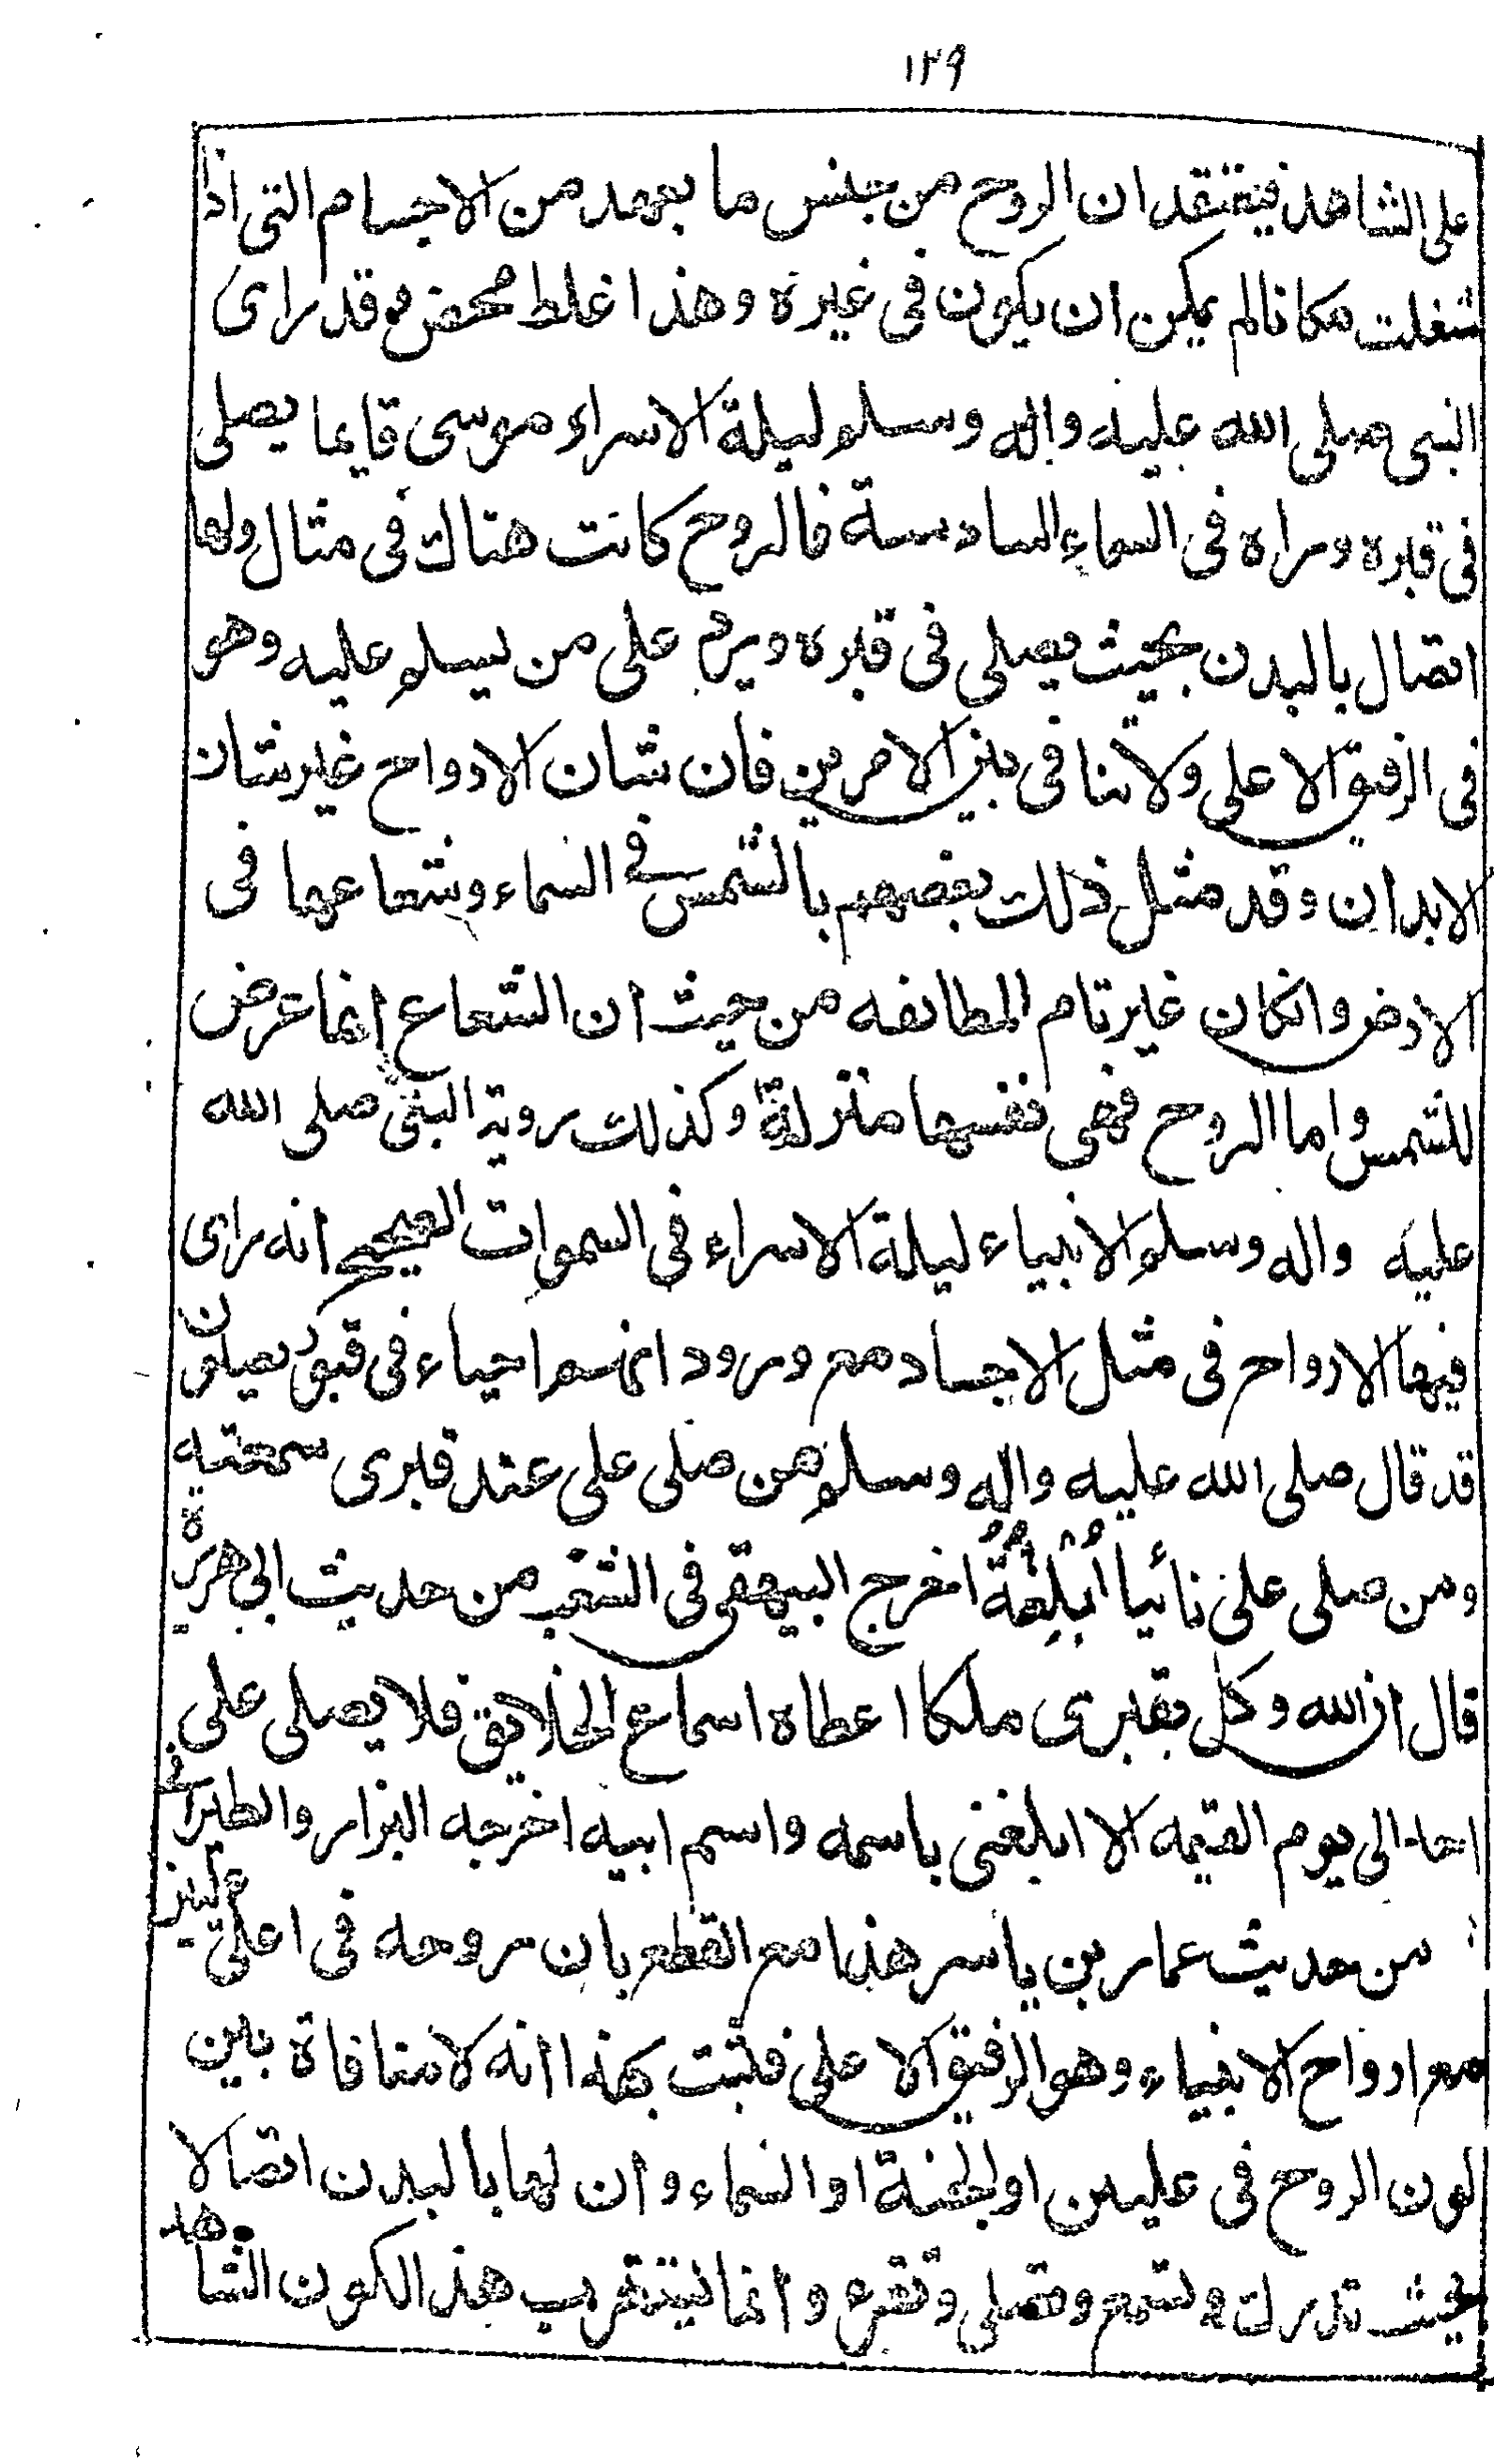 ١٢٩
على الشاهد فيعتقد ان الروح من جنس ما يعهد من الاجسام التى اذا
شغلت مكانا لم يمكن ان يكون فى غيره وهذا غلط محض وقد راى
النبى صلى الله عليه واله وسلم ليلة الاسراء موسى قايما يصلى
فى قبره وراه فى السماء السادسة فالروح كانت هناك فى مثال ولها
اتصال بالبدن بحيث يصلى فى قبره ويرد على من يسلم عليه وهو
فى الرفيق الاعلى ولا تنافى بين الامرين فان شان الارواح غير شان
الابدان وقد مثل ذلك بعضهم بالشمس فى السماء وشعاعها فى
الارض وانكان غير تام المطابقه من حيث ان الشعاع انما عرض
للشمس واما الروح فهى نفسها منزلة وكذلك روية النبى صلى الله
عليه واله وسلم الانبياء ليلة الاسراء فى السموات الصحيح انه راى
فيها الارواح فى مثل الاجساد مع ورود انهم احياء فى قبور يصلون
قد قال صلى الله عليه واله وسلم من صلى على عند قبرى سمعته
ومن صلى على نائيا أُبْلِغْتُهُ اخرج البيهقى فى الشعب من حديث ابى هريرة
قال ان الله وكل بقبرى ملكا اعطاه اسماع الخلايق فلا يصلى على
احد الى يوم القيمه الا ابلغنى باسمه واسم ابيه اخرجه البزار والطبرانى
من حديث عمار بن ياسر هذا مع القطع بان روحه فى اعلى عليين
مع ارواح الانبياء وهو الرفيق الاعلى فثبت بهذا انه لا منافاة بين
كون الروح فى عليين او الجنة او السماء وان لها بالبدن اتصالا
بحيث تدرك وتسمع وتصلى وتقرء وانما يستغرب هذا لكون الشاهد